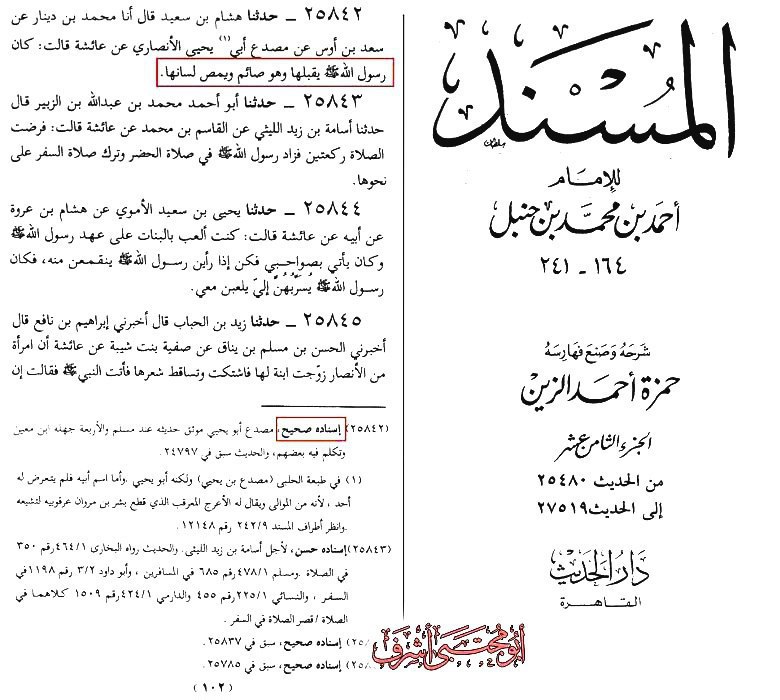 المسند
للإمام
أحمد بن محمد بن حنبل
١٦٤ - ٢٤١
شرحه وصنع فهارسه
حمزة أحمد الزين
الجزء الثامن عشر
من الحديث ٢٥٤٨٠
إلى الحديث ٢٧٥١٩
دار الحديث
القاهرة
٢٥٨٤٢ ــ حدثنا هشام بن سعيد قال أنا محمد بن دينار عن
سعد بن أوس عن مصدع أبي(١) يحيى الأنصاري عن عائشة قالت: كان
رسول الله ﷺ يقبلها وهو صائم ويمص لسانها.
٢٥٨٤٣ ــ حدثنا أبو أحمد محمد بن عبدالله بن الزبير قال
حدثنا أسامة بن زيد الليثي عن القاسم بن محمد عن عائشة قالت: فرضت
الصلاة ركعتين فزاد رسول الله ﷺ في صلاة الحضر وترك صلاة السفر على
نحوها.
٢٥٨٤٤ ــ حدثنا يحيى بن سعيد الأموي عن هشام بن عروة
عن أبيه عن عائشة قالت: كنت ألعب بالبنات على عهد رسول الله ﷺ
وكان يأتي بصواحبي فكن إذا رأين رسول الله ﷺ ينقمعن منه، فكان
رسول الله ﷺ يُسَرِّبُهُنَّ إليّ يلعبن معي.
٢٥٨٤٥ ــ حدثنا زيد بن الحباب قال أخبرني إبراهيم بن نافع قال
أخبرني الحسن بن مسلم بن يناق عن صفية بنت شيبة عن عائشة أن امرأة
من الأنصار زوّجت ابنة لها فاشتكت وتساقط شعرها فأتت النبي ﷺ فقالت إن
(٢٥٨٤٢) إسناده صحيح، مصدع أبو يحيى موثق حديثه عند مسلم والأربعة جهله ابن معين
وتكلم فيه بعضهم، والحديث سبق في ٢٤٧٩٧.
(١) في طبعة الحلبى (مصدع بن يحيي) ولكنه أبو يحيي. وأما اسم أبيه فلم يتعرض له
أحد ، لأنه من الموالى ويقال له الأعرج المعرقب الذي قطع بشر بن مروان عرقوبيه لتشيعه
. وانظر أطراف المسند ٢٤٢/٩ رقم ١٢١٤٨ .
(٢٥٨٤٣) إسناده حسن، لأجل أسامة بن زيد الليثى. والحديث رواه البخارى ٤٦٤/١ رقم ٣٥٠
في الصلاة . ومسلم ٤٧٨/١ رقم ٦٨٥ في المسافرين ، وأبو داود ٣/٢ رقم ١١٩٨ في
السفر ، والنسائي ٢٢٥/١ رقم ٤٥٥ والدارمي ٤٢٤/١ رقم ١٥٠٩ كلاهما في
الصلاة / قصر الصلاة في السفر .
إسناده صحيح، سبق في ٢٥٨٣٧.
إسناده صحيح، سبق في ٢٥٧٨٥.
(١٠٢)
أبو مجتبى أشرف